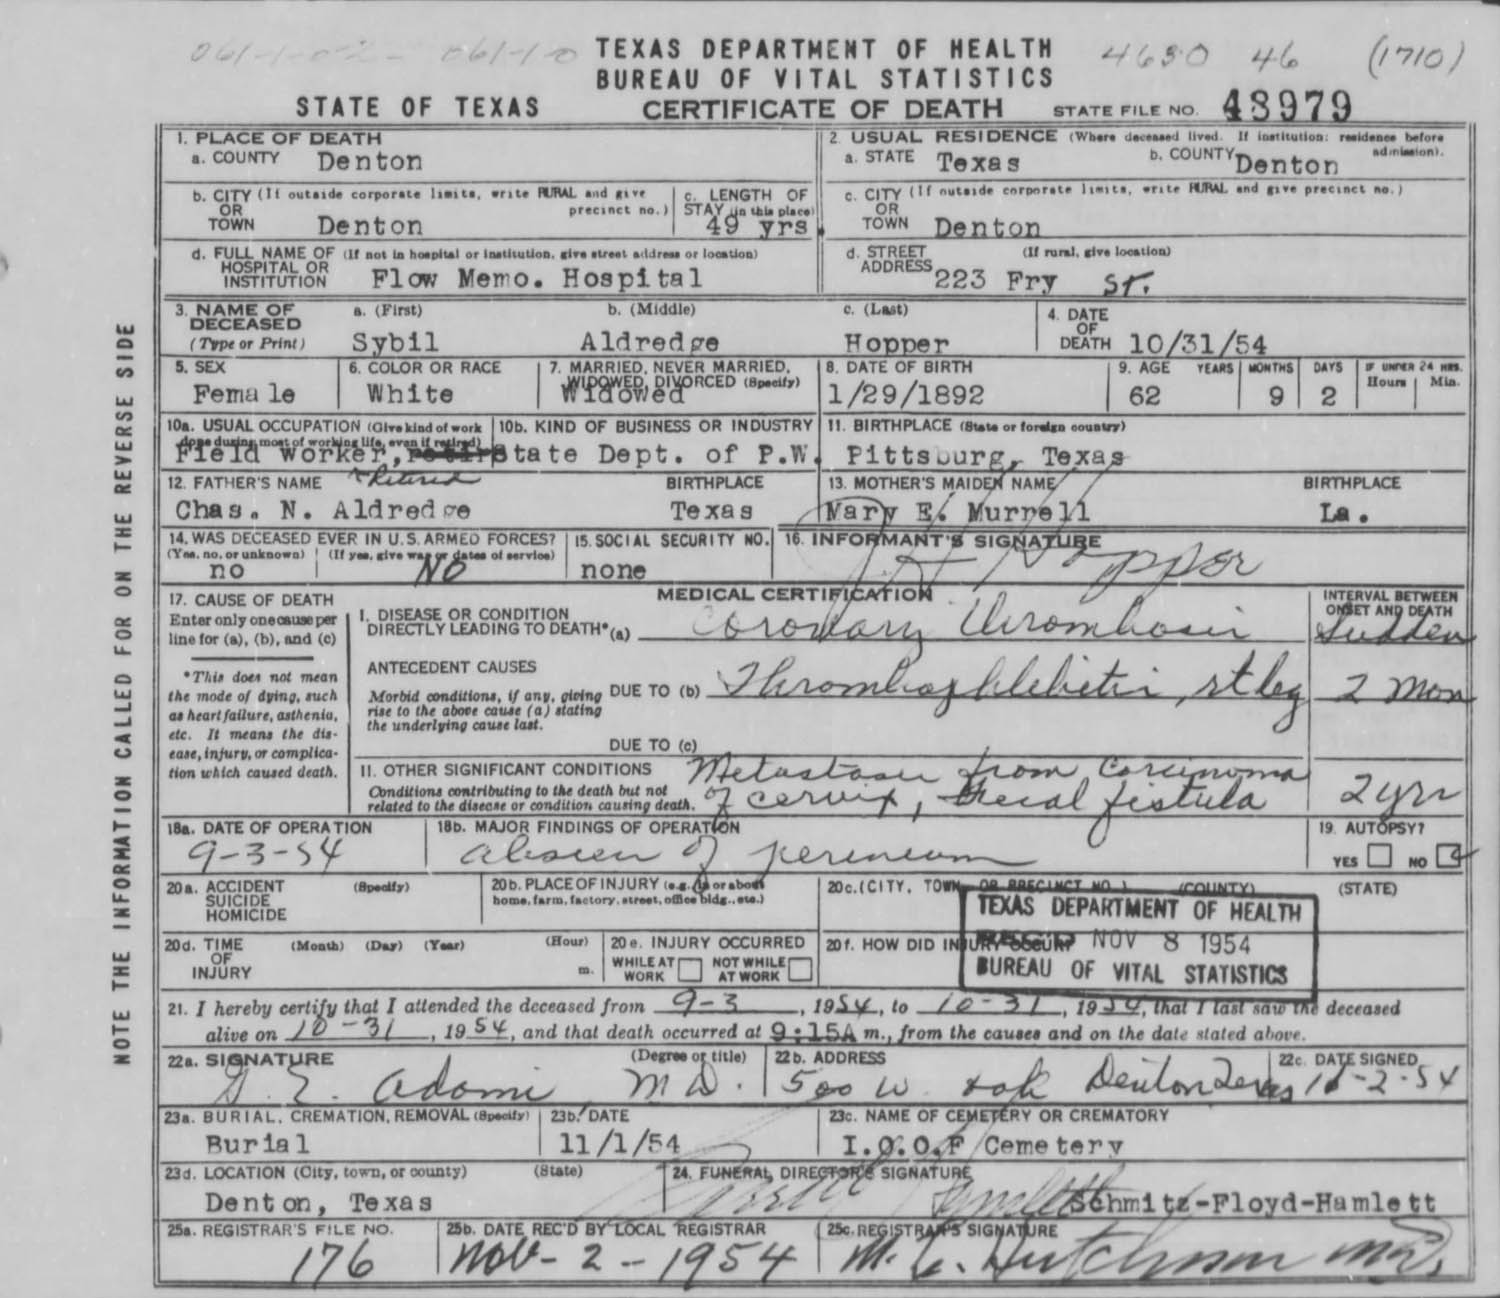 061-1-02- 061-1-0
TEXAS DEPARTMENT OF HEALTH
4680 46 (1710)
BUREAU OF VITAL STATISTICS
STATE OF TEXAS CERTIFICATE OF DEATH STATE FILE NO. 48979
NOTE THE INFORMATION CALLED FOR ON THE REVERSE SIDE
1. PLACE OF DEATH
a. COUNTY Denton
2. USUAL RESIDENCE (Where deceased lived. If institution: residence before admission).
a. STATE Texas b. COUNTY Denton
b. CITY (If outside corporate limits, write RURAL and give precinct no.)
OR
TOWN Denton
c. LENGTH OF
STAY (in this place)
49 yrs.
c. CITY (If outside corporate limits, write RURAL and give precinct no.)
OR
TOWN Denton
d. FULL NAME OF (If not in hospital or institution, give street address or location)
HOSPITAL OR
INSTITUTION Flow Memo. Hospital
d. STREET (If rural, give location)
ADDRESS 223 Fry St.
3. NAME OF DECEASED
(Type or Print)
a. (First) b. (Middle) c. (Last)
Sybil Aldredge Hopper
4. DATE
OF
DEATH 10/31/54
5. SEX
Female
6. COLOR OR RACE
White
7. MARRIED, NEVER MARRIED,
WIDOWED, DIVORCED (Specify)
Widowed
8. DATE OF BIRTH
1/29/1892
9. AGE YEARS MONTHS DAYS IF UNDER 24 HRS.
Hours Min.
62 9 2
10a. USUAL OCCUPATION (Give kind of work
done during most of working life, even if retired)
Field Worker,
Retired
10b. KIND OF BUSINESS OR INDUSTRY
State Dept. of P.W.
11. BIRTHPLACE (State or foreign country)
Pittsburg, Texas
12. FATHER'S NAME BIRTHPLACE
Chas. N. Aldredge Texas
13. MOTHER'S MAIDEN NAME BIRTHPLACE
Mary E. Murrell La.
14. WAS DECEASED EVER IN U.S. ARMED FORCES?
(Yes, no, or unknown) (If yes, give war or dates of service)
no NO
15. SOCIAL SECURITY NO.
none
16. INFORMANT'S SIGNATURE
J H Hopper
17. CAUSE OF DEATH
Enter only one cause per
line for (a), (b), and (c)
*This does not mean
the mode of dying, such
as heart failure, asthenia,
etc. It means the dis-
ease, injury, or complica-
tion which caused death.
MEDICAL CERTIFICATION
INTERVAL BETWEEN
ONSET AND DEATH
I. DISEASE OR CONDITION
DIRECTLY LEADING TO DEATH* (a) Coronary thrombosis Sudden
ANTECEDENT CAUSES
Morbid conditions, if any, giving
rise to the above cause (a) stating
the underlying cause last.
DUE TO (b) Thrombophlebitis, rt leg 2 Mon
DUE TO (c)
II. OTHER SIGNIFICANT CONDITIONS
Conditions contributing to the death but not
related to the disease or condition causing death.
Metastases from Carcinoma
of cervix, fecal fistula 2 yrs
18a. DATE OF OPERATION
9-3-54
18b. MAJOR FINDINGS OF OPERATION
abscess of perineum
19. AUTOPSY?
YES NO
20a. ACCIDENT (Specify)
SUICIDE
HOMICIDE
20b. PLACE OF INJURY (e.g., in or about
home, farm, factory, street, office bldg., etc.)
20c. (CITY, TOWN, OR PRECINCT NO.) (COUNTY) (STATE)
20d. TIME (Month) (Day) (Year) (Hour)
OF
INJURY m.
20e. INJURY OCCURRED
WHILE AT WORK NOT WHILE AT WORK
20f. HOW DID INJURY OCCUR?
TEXAS DEPARTMENT OF HEALTH
REC'D NOV 8 1954
BUREAU OF VITAL STATISTICS
21. I hereby certify that I attended the deceased from 9-3, 1954, to 10-31, 1954, that I last saw the deceased
alive on 10-31, 1954, and that death occurred at 9:15A m., from the causes and on the date stated above.
22a. SIGNATURE (Degree or title)
G. E. Adami M D.
22b. ADDRESS
500 W. Oak Denton Texas
22c. DATE SIGNED
11-2-54
23a. BURIAL, CREMATION, REMOVAL (Specify)
Burial
23b. DATE
11/1/54
23c. NAME OF CEMETERY OR CREMATORY
I.O.O.F Cemetery
23d. LOCATION (City, town, or county) (State)
Denton, Texas
24. FUNERAL DIRECTOR'S SIGNATURE
Schmitz-Floyd-Hamlett
25a. REGISTRAR'S FILE NO.
176
25b. DATE REC'D BY LOCAL REGISTRAR
Nov-2-1954
25c. REGISTRAR'S SIGNATURE
M. L. Hutcheson MD.